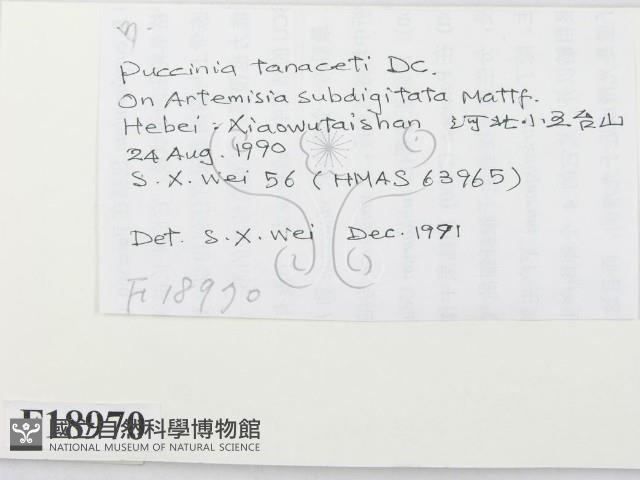 Puccinia tanaceti DC.
On Artemisia subdigitata Mattf.
Hebei : Xiaowutaishan 河北小五台山
24 Aug. 1990
S. X. Wei 56 ( HMAS 63965)
Det. S. X. Wei Dec. 1991
F 18970
F18970
國立自然科學博物館
NATIONAL MUSEUM OF NATURAL SCIENCE